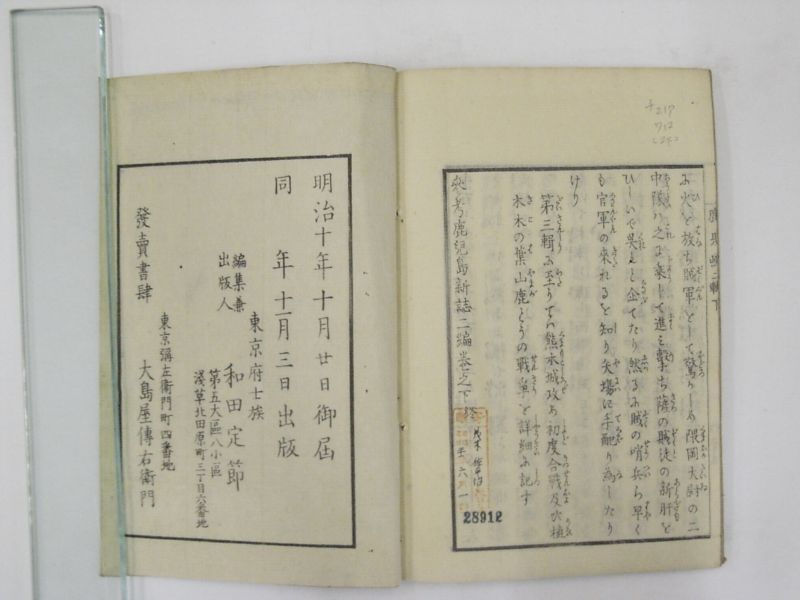 に火を放ち賊軍をして驚かしめ隈岡大尉の二
中隊ハ之に乗じて進ミ撃ち薩の賊徒の新肝を
ひしいで呉んと企てたり然るに賊の哨兵ら早く
も官軍の来れるを知り矢場に手配り為したり
けり
第三輯に至りてハ熊本城攻め初度合戦及ひ植
木木の葉山鹿とうの戦争を詳細に記す
鹿児島新誌二編巻之下 終
28912
明治十年十月廿日御届
同 年十一月三日出版
東京府士族
編集兼
出版人
和田定節
第五大區八小區
淺草北田原町三丁目六番地
發賣書肆
東京彌左衞門町四番地
大島屋傳右衞門